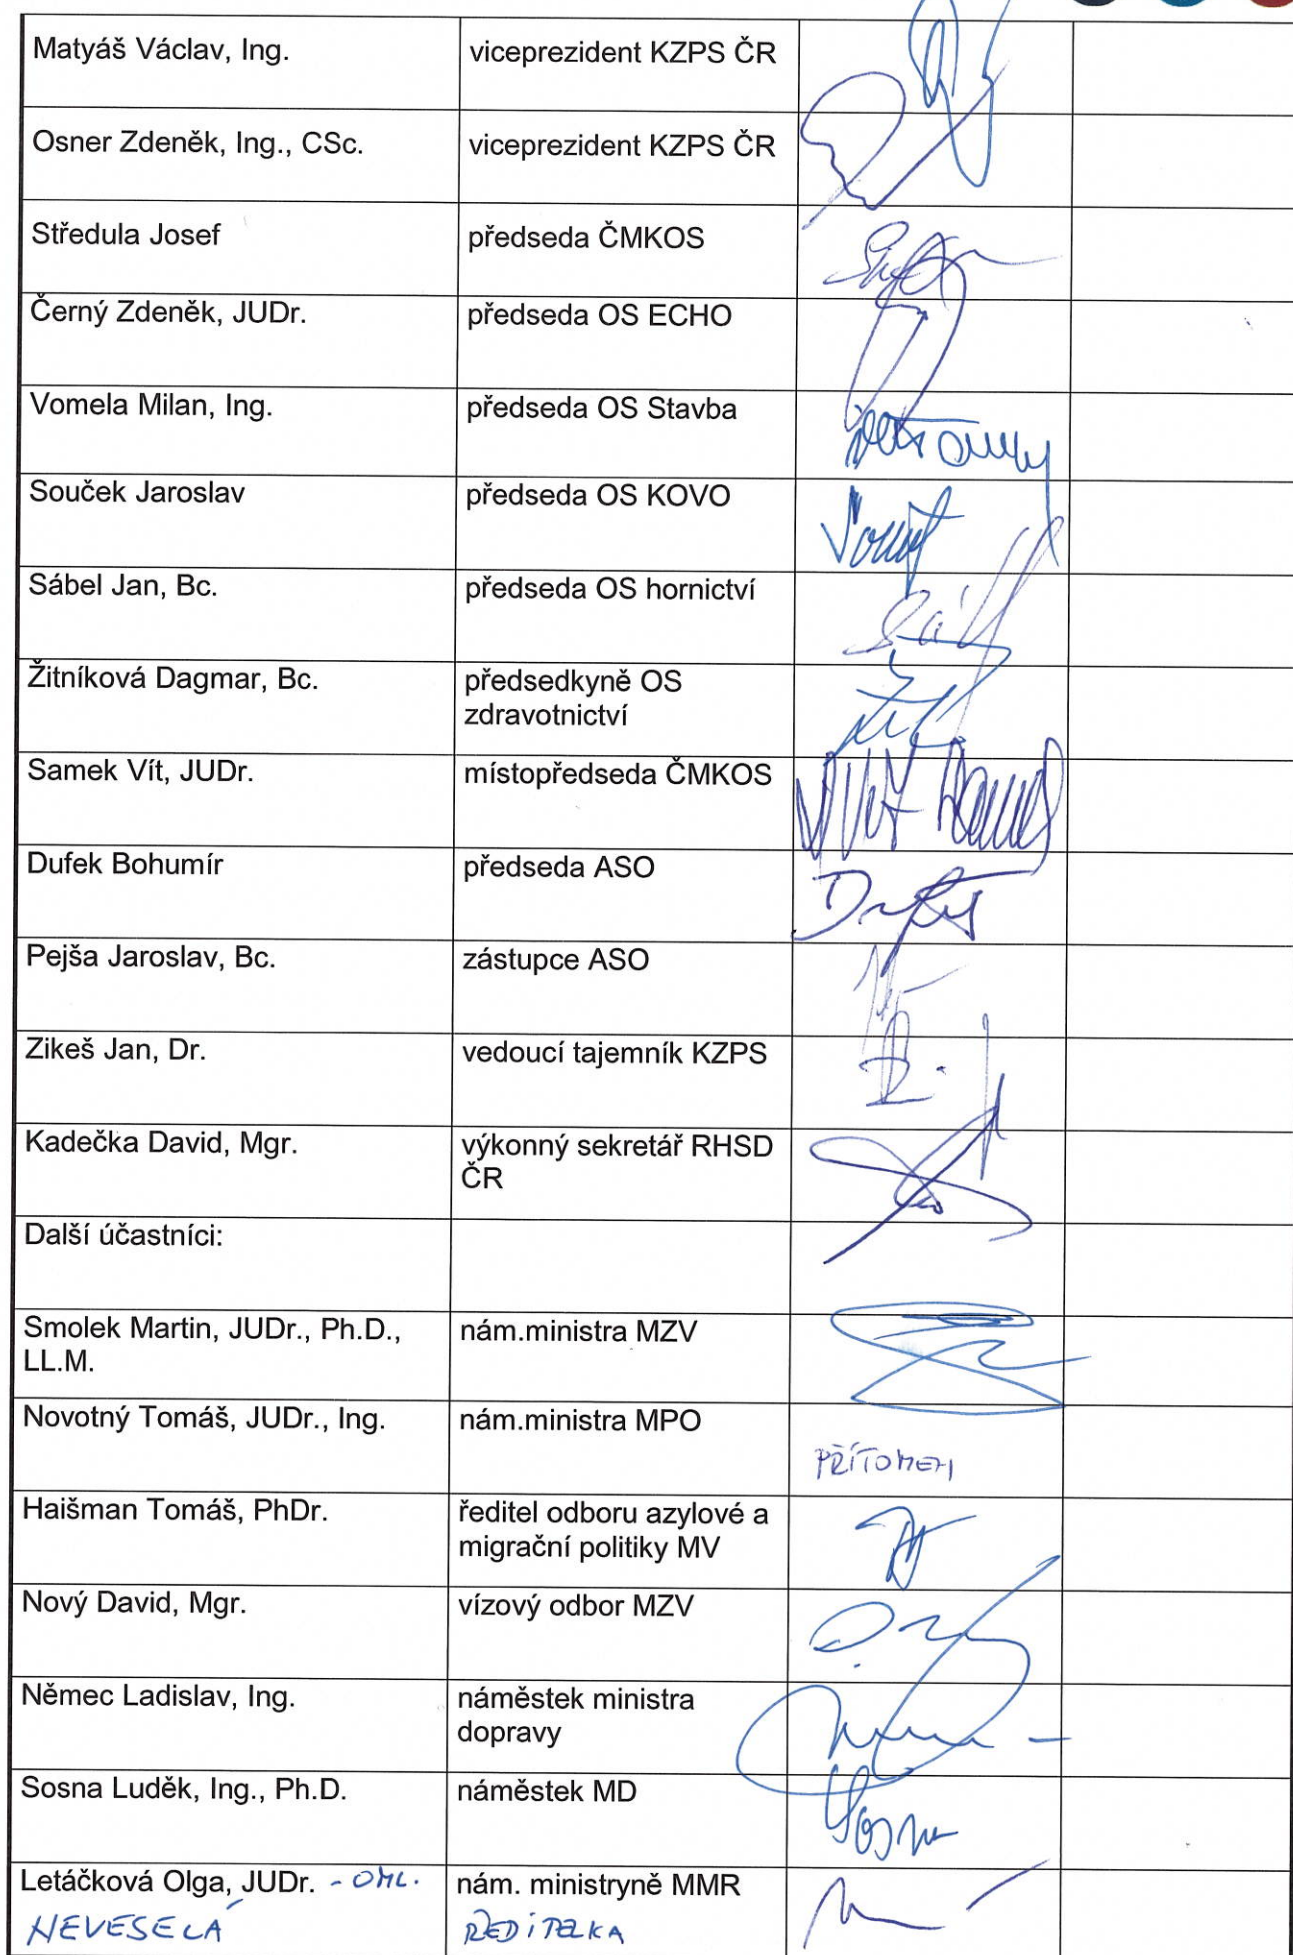 Matyáš Václav, Ing. viceprezident KZPS ČR
Osner Zdeněk, Ing., CSc. viceprezident KZPS ČR
Středula Josef předseda ČMKOS
Černý Zdeněk, JUDr. předseda OS ECHO
Vomela Milan, Ing. předseda OS Stavba
Souček Jaroslav předseda OS KOVO
Sábel Jan, Bc. předseda OS hornictví
Žitníková Dagmar, Bc. předsedkyně OS
zdravotnictví
Samek Vít, JUDr. místopředseda ČMKOS
Dufek Bohumír předseda ASO
Pejša Jaroslav, Bc. zástupce ASO
Zikeš Jan, Dr. vedoucí tajemník KZPS
Kadečka David, Mgr. výkonný sekretář RHSD
ČR
Další účastníci:
Smolek Martin, JUDr., Ph.D., nám.ministra MZV
LL.M.
Novotný Tomáš, JUDr., Ing. nám.ministra MPO
PŘÍTOMEN
Haišman Tomáš, PhDr. ředitel odboru azylové a
migrační politiky MV
Nový David, Mgr. vízový odbor MZV
Němec Ladislav, Ing. náměstek ministra
dopravy
Sosna Luděk, Ing., Ph.D. náměstek MD
Sosna
Letáčková Olga, JUDr. - OML. nám. ministryně MMR
NEVESELÁ ŘEDITELKA